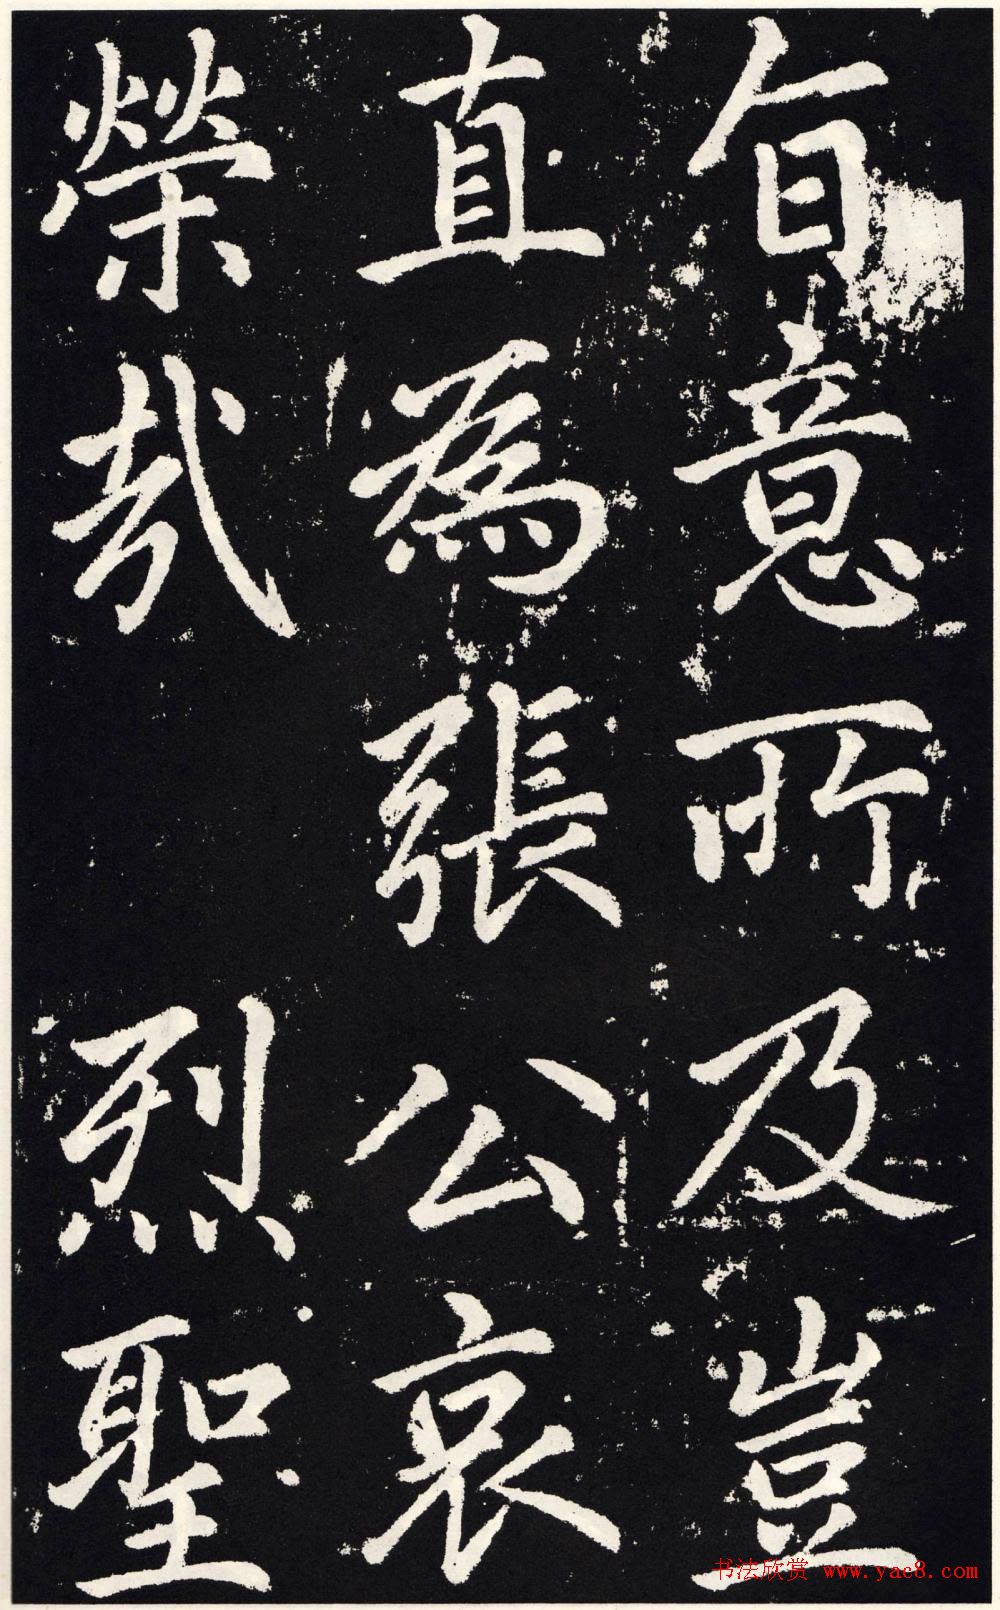 旨意所及豈
直為張公哀
榮哉 烈聖
书法欣赏 www.yac8.com